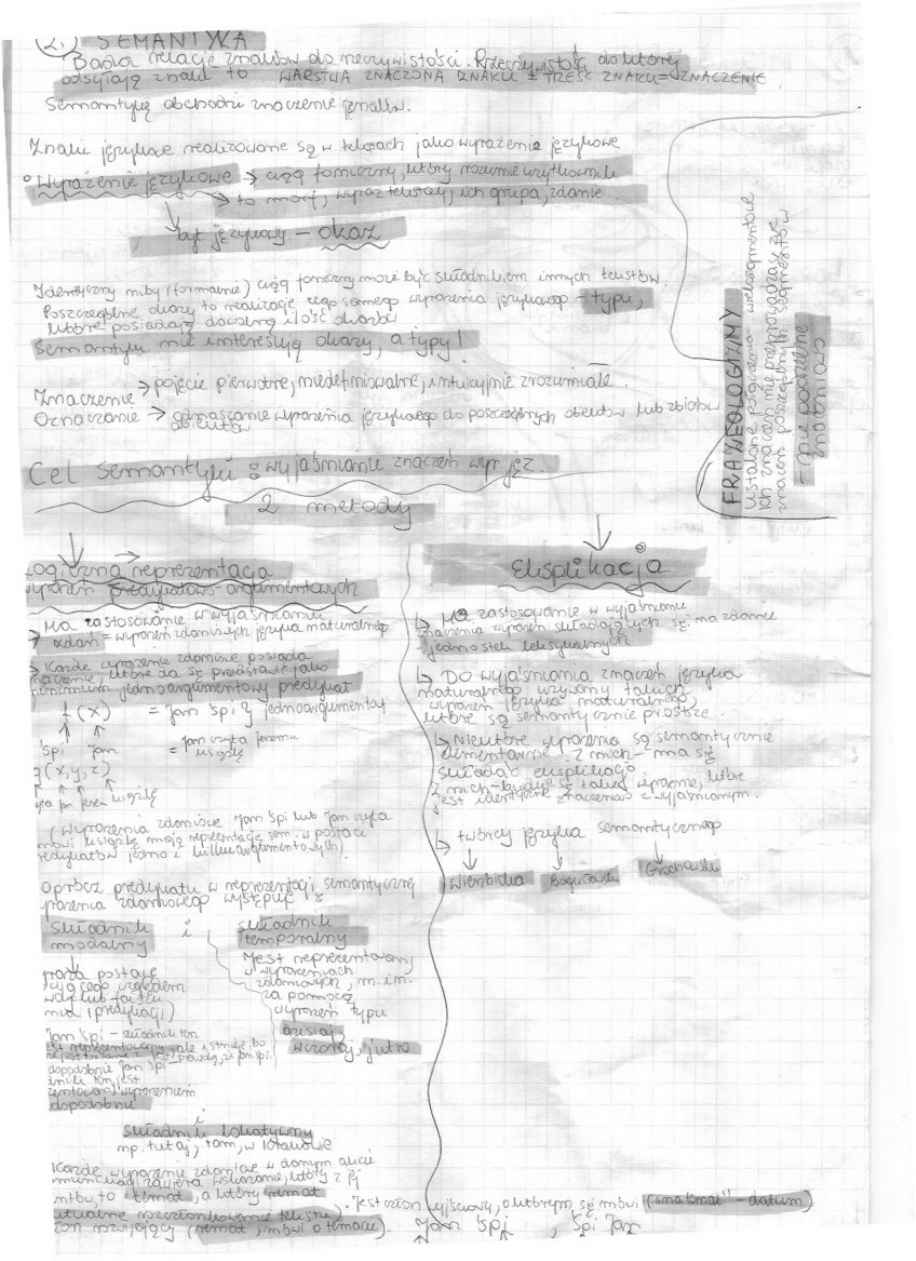 2. SEMANTYKA
Bada relacje znaków do rzeczywistości. Rzeczywistość do której
odsyłają znaki to WARSTWA ZNACZONA ZNAKU = TREŚĆ ZNAKU = ZNACZENIE
Semantykę obchodzi znaczenie znaków.
Znaki językowe realizowane są w tekstach jako wyrażenie językowe
Wyrażenie językowe → ciąg foniczny, który rozumie użytkownik
→ to morf, wyraz tekstowy, ich grupa, zdanie.
byt językowy - okaz
Identyczny niby (formalnie) ciąg foniczny może być składnikiem innych tekstów.
Poszczególne okazy to realizacje tego samego wyrażenia językowego - typu,
które posiadają dowolną ilość okazów
Semantykę nie interesują okazy, a typy!
Znaczenie → pojęcie pierwotne, niedefiniowalne, intuicyjnie zrozumiałe.
Oznaczanie → odnaszanie wyrażenia językowego do poszczególnych obiektów lub zbiorów
obiektów
FRAZEOLOGIZMY
ustalone połączenia wielosegmentowe.
Ich znaczeń nie przeprowadzasz ze
znaczeń poszczególnych segmentów
= nie podzielne
znaczeniowo
Cel semantyki: wyjaśnianie znaczeń wyr. jęz.
2 metody
Logiczna reprezentacja
wyrażeń predykatowo-argumentowych
→ Ma zastosowanie w wyjaśnianiu
→ zdań = wyrażeń zdaniowych języka naturalnego
→ Każde wyrażenie zdaniowe posiada
znaczenie, które da się przedstawić jako
minimum jednoargumentowy predykat
f(x) = Jan śpi jednoargumentowy
śpi Jan = Jan czyta Jeremu
książkę
g(x,y,z)
czyta Jan Jerem książkę
(Wyrażenia zdaniowe Jan śpi lub Jan czyta
książkę mają reprezentację sem. w postaci
predykatów jedno i kilku argumentowych)
Oprócz predykatu w reprezentacji semantycznej
wyrażenia zdaniowego występuje:
składnik
modalny
i
składnik
temporalny
Jest reprezentowany
w wyrażeniach
zdaniowych, m.in.
za pomocą
wyrażeń typu
dzisiaj,
wczoraj, jutro
Jan śpi - składnik ten
i
składnik lokatywny
np. tutaj, tam, w Krakowie
Każde wyrażenie zdaniowe w danym akcie
komunikacji zawiera wskazanie, który z jej
to temat, a który remat
aktualne rozczłonkowanie tekstu. Jest człon wyjściowy, o którym się mówi ("ma temat" - datum)
człon rozwijający (remat, mówi o temacie). Jan śpi , Śpi Jan
Eksplikacja
↳ Ma zastosowanie w wyjaśnianiu
znaczenia wyrażeń składających się na zdanie
- jednostek leksykalnych
↳ Do wyjaśniania znaczeń języka
naturalnego używamy takich
wyrażeń języka naturalnego,
które są semantycznie prostsze.
↳ Niektóre wyrażenia są semantycznie
elementarne. Z nich - ma się
składać eksplikacja
Z nich buduje się takie wyrażenie, które
jest identyczne znaczeniowo z wyjaśnianym.
↳ twórcy języka semantycznego
Wierzbicka Bogusławski Grochowski